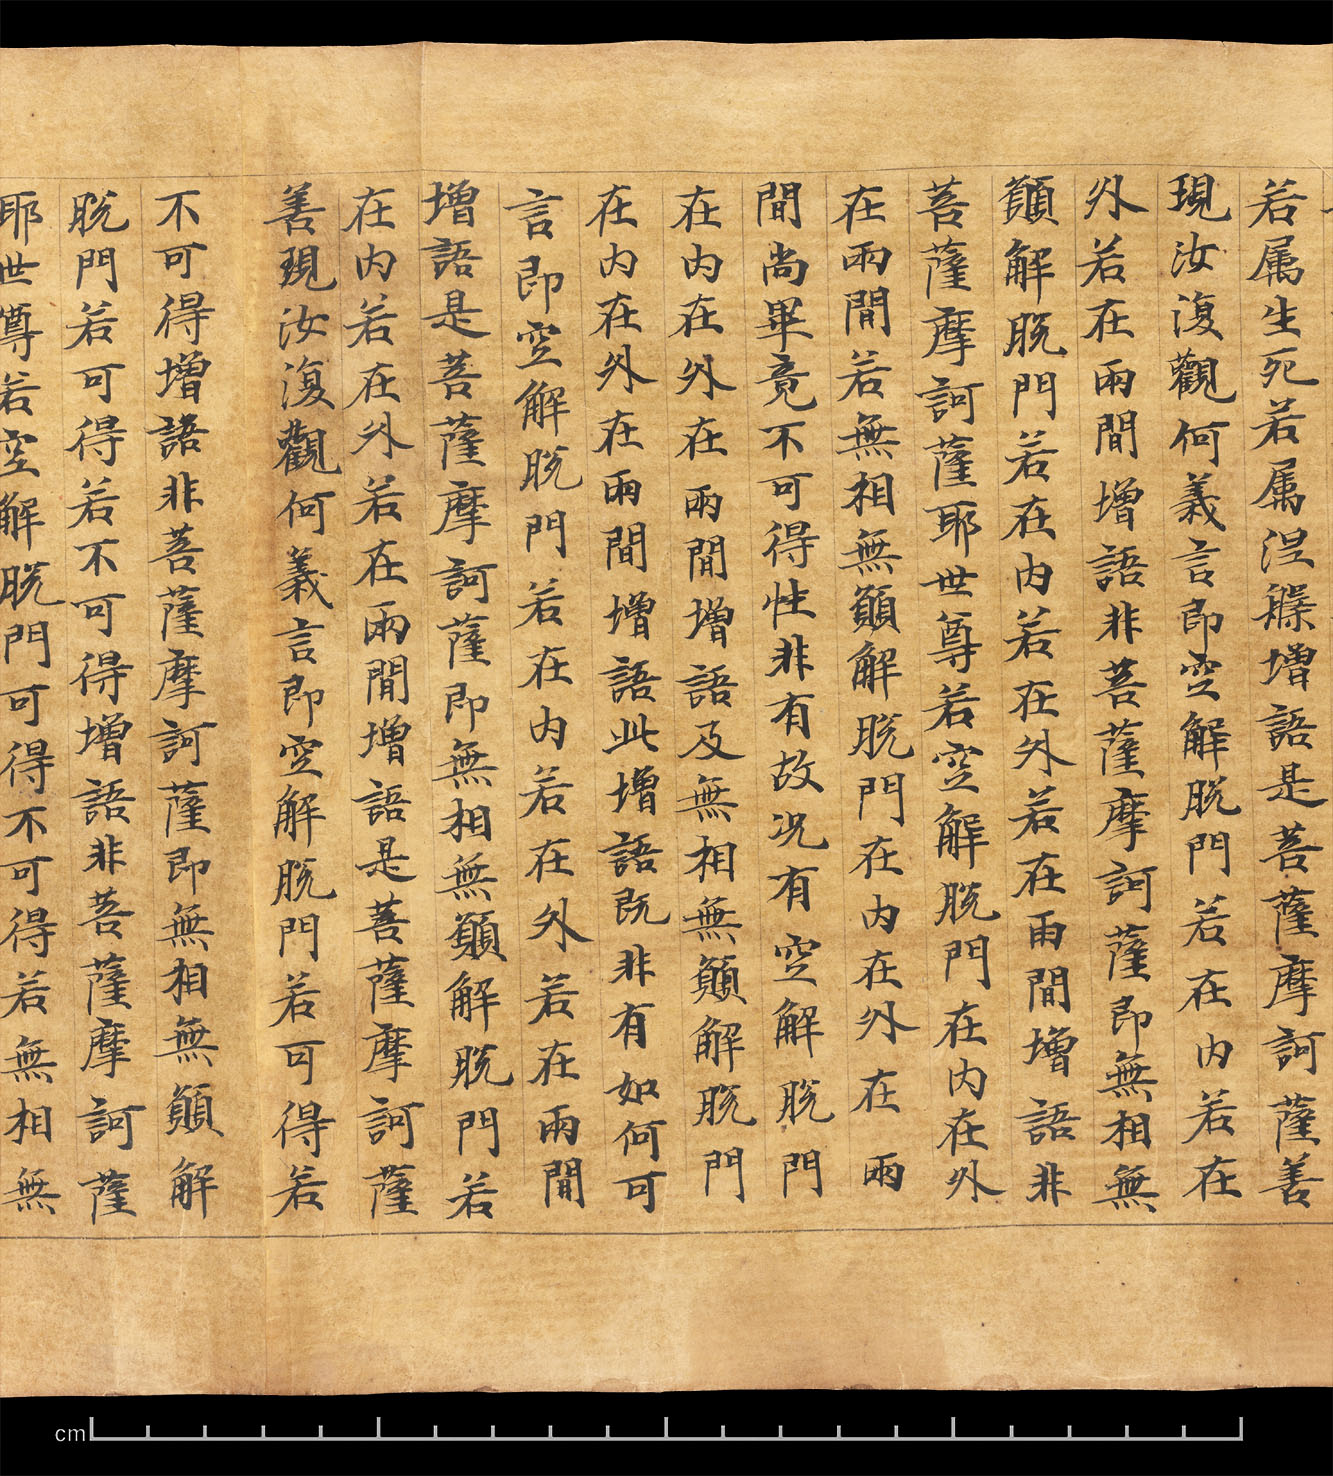 若属生死若属涅槃增語是菩薩摩訶薩善
現汝復觀何義言即空解脫門若在內若在
外若在兩間增語非菩薩摩訶薩即無相無
願解脫門若在內若在外若在兩間增語非
菩薩摩訶薩耶世尊若空解脫門在內在外
在兩間若無相無願解脫門在內在外在兩
間尚畢竟不可得性非有故况有空解脫門
在內在外在兩間增語及無相無願解脫門
在內在外在兩間增語此增語既非有如何可
言即空解脫門若在內若在外若在兩間
增語是菩薩摩訶薩即無相無願解脫門若
在內若在外若在兩間增語是菩薩摩訶薩
善現汝復觀何義言即空解脫門若可得若
不可得增語非菩薩摩訶薩即無相無願解
脫門若可得若不可得增語非菩薩摩訶薩
耶世尊若空解脫門可得不可得若無相無